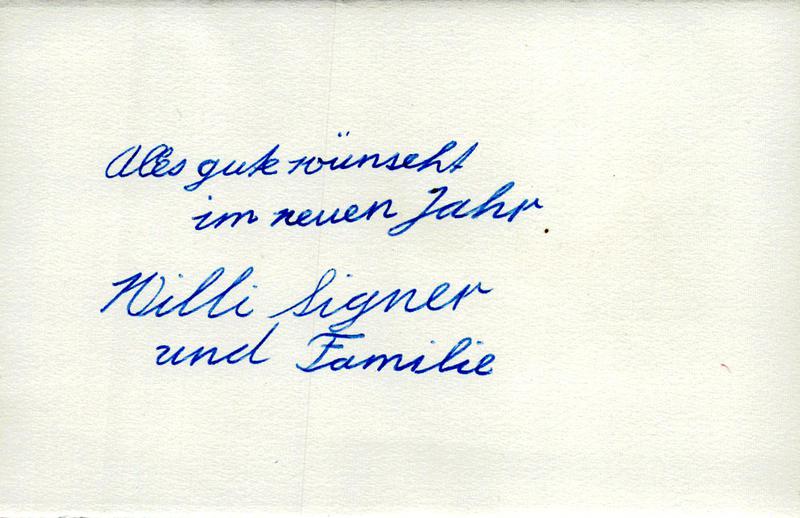 Alles gute wünscht
im neuen Jahr
Willi Signer
und Familie